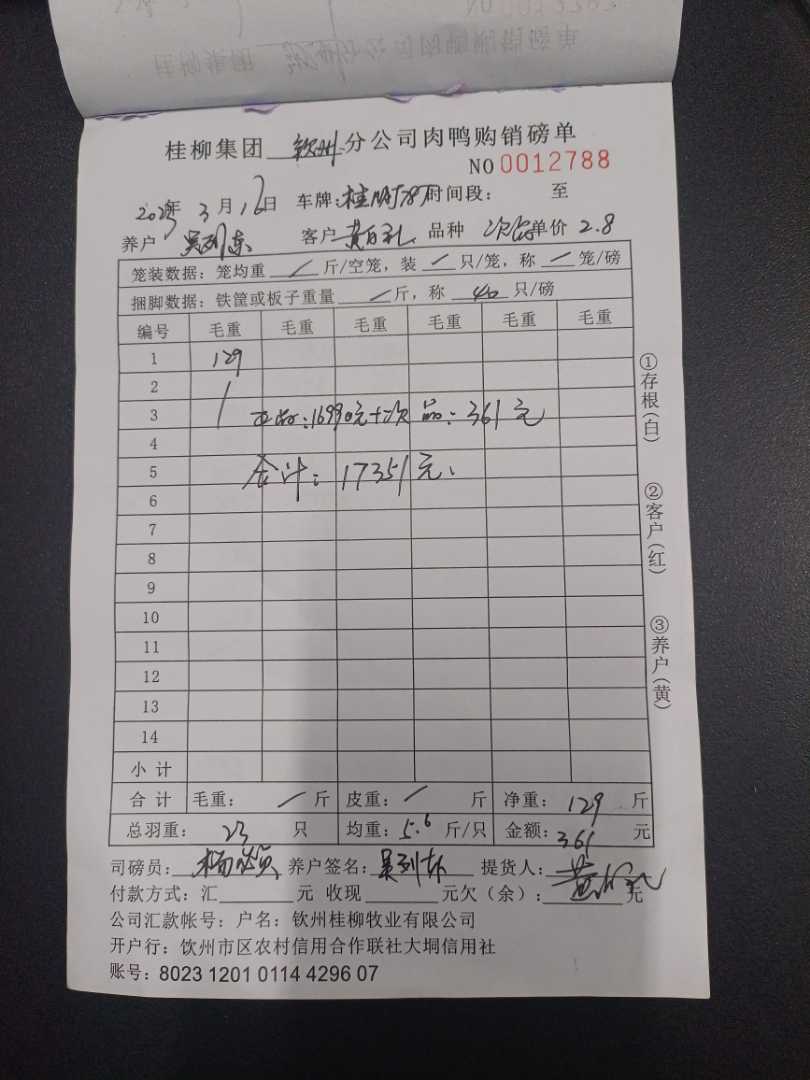 桂柳集团 钦州 分公司肉鸭购销磅单
NO 0012788
2023年 3月1 日 车牌: 桂 时间段: 至
养户 吴列东 客户 黄 礼 品种 次品 单价 2.8
笼装数据: 笼均重 / 斤/空笼, 装 / 只/笼, 称 / 笼/磅
捆脚数据: 铁筐或板子重量 / 斤, 称 40 只/磅
编号 毛重 毛重 毛重 毛重 毛重 毛重
1 129
2
3 正品: 16990元+次品: 361元
4
5 合计: 17351元
6
7
8
9
10
11
12
13
14
小计
合计 毛重: / 斤 皮重: / 斤 净重: 129 斤
总羽重: 23 只 均重: 5.6 斤/只 金额: 361 元
司磅员: 杨 养户签名: 吴列东 提货人: 黄 礼
付款方式: 汇 元 收现 元欠(余): 元
公司汇款帐号: 户名: 钦州桂柳牧业有限公司
开户行: 钦州市区农村信用合作联社大垌信用社
账号: 8023 1201 0114 4296 07
①存根(白)
②客户(红)
③养户(黄)